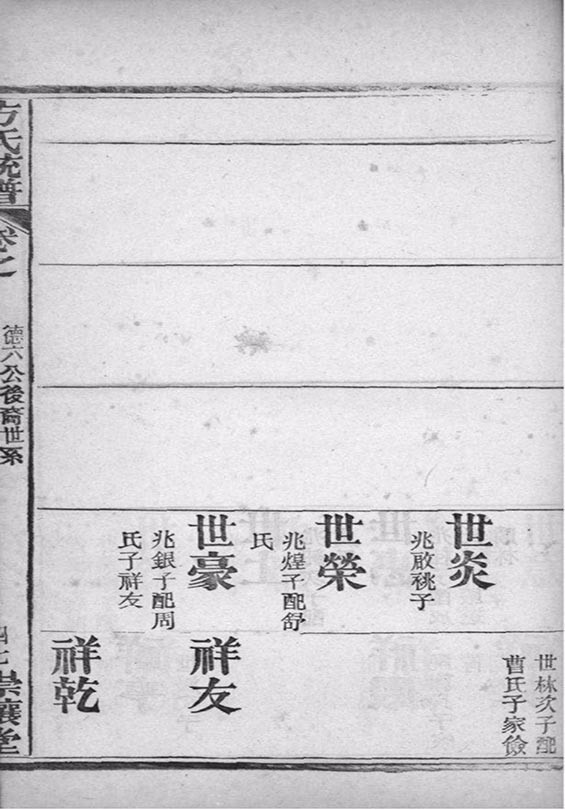 世林次子配
曹氏子家儉
世炎
兆啟祧子
世榮
兆煌子配舒
氏
世豪
兆銀子配周
氏子祥友
祥友
祥乾
方氏統譜
卷之
德六公後裔世系
崇讓堂